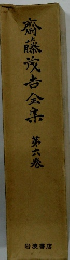 齋藤茂吉全集
第六卷
岩波書店